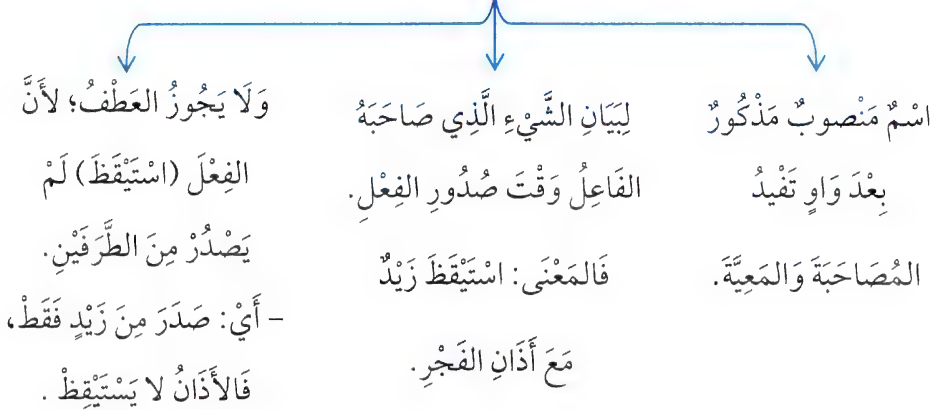 اسْمٌ مَنْصوبٌ مَذْكُورٌ
بِعْدَ وَاوٍ تَفْيدُ
المُصَاحَبَةَ وَالمَعِيَّةَ.
لِبَيَانِ الشَّيْءِ الَّذِي صَاحَبَهُ
الفَاعِلُ وَقْتَ صُدُورِ الفِعْلِ.
فَالمَعْنَى: اسْتَيْقَظَ زَيْدٌ
مَعَ أَذَانِ الفَجْرِ.
وَلَا يَجُوزُ العَطْفُ؛ لأَنَّ
الفِعْلَ (اسْتَيْقَظَ) لَمْ
يَصْدُرْ مِنَ الطَّرَفَيْنِ.
– أَيْ: صَدَرَ مِنَ زَيْدٍ فَقَطْ،
فَالأَذَانُ لا يَسْتَيْقِظْ.